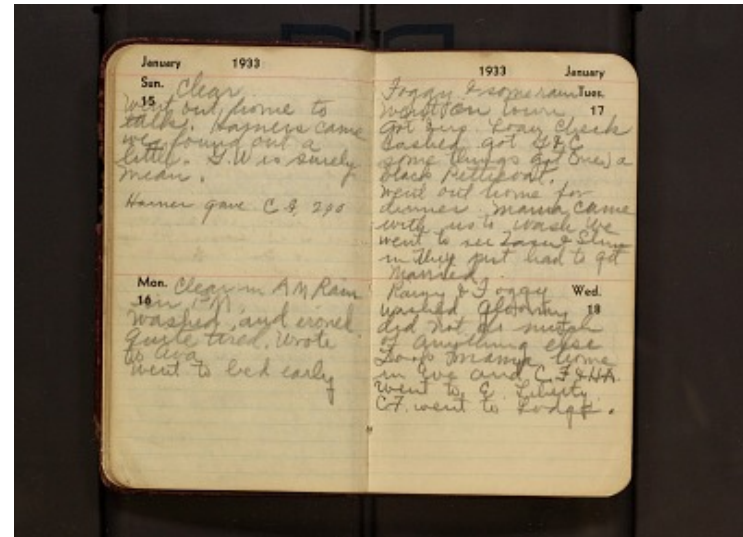 January 1933
Sun. Clear
15 Went out home to
talk. Harners came
we found out a
little. G.W is surely
mean.
Harner gave C.F. 200
Mon. Clear in A M Rain
16 in P.M.
Washed, and ironed
Quite tired. Wrote
to Ava
Went to bed early
1933 January
Foggy & some rain Tues.
Went on town 17
got Loan Check
Cashed got
some things got (one) a
black Petticoat.
went out home for
dinner. Mama came
with us to wash We
went to see
in They just had to get
Married
Rainy & Foggy Wed.
washed Gloomy 18
did not do much
of anything else
Took Mama home
in Eve and C.F & H.A.
Went to E. Liberty
C.F. went to Lodge.